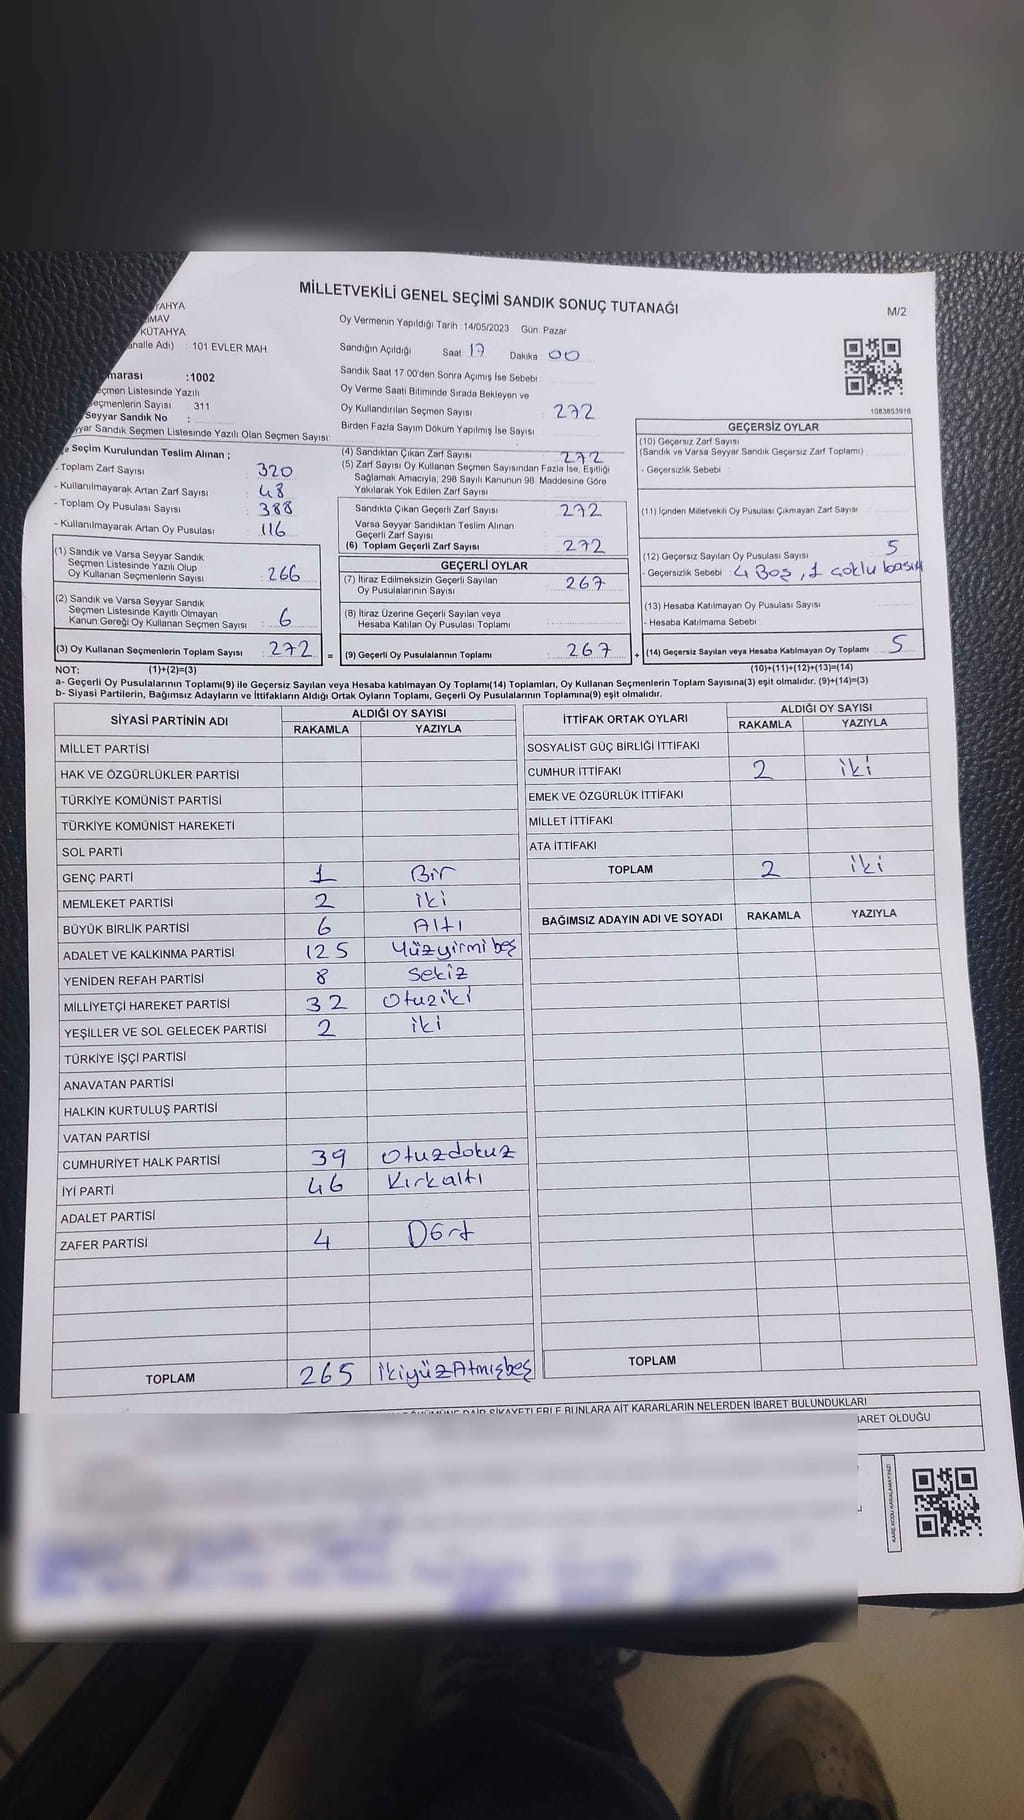 MİLLETVEKİLİ GENEL SEÇİMİ SANDIK SONUÇ TUTANAĞI
M/2
TAHYA
MAV
KÜTAHYA
ahalle Adı) : 101 EVLER MAH.
Oy Vermenin Yapıldığı Tarih : 14/05/2023 Gün: Pazar
Sandığın Açıldığı Saat 17 Dakika : 00
Sandık Saat 17 00'den Sonra Açımış İse Sebebi
Oy Verme Saati Bitiminde Sırada Bekleyen ve
Oy Kullandırılan Seçmen Sayısı : 272
Birden Fazla Sayım Döküm Yapılmış İse Sayısı
1083853916
marası :1002
eçmen Listesinde Yazılı
eçmenlerin Sayısı 311
Seyyar Sandık No :
yyar Sandık Seçmen Listesinde Yazılı Olan Seçmen Sayısı:
e Seçim Kurulundan Teslim Alınan ;
- Toplam Zarf Sayısı : 320
- Kullanılmayarak Artan Zarf Sayısı : 48
- Toplam Oy Pusulası Sayısı : 388
- Kullanılmayarak Artan Oy Pusulası : 116
(1) Sandık ve Varsa Seyyar Sandık
Seçmen Listesinde Yazılı Olup
Oy Kullanan Seçmenlerin Sayısı : 266
(2) Sandık ve Varsa Seyyar Sandık
Seçmen Listesinde Kayıtlı Olmayan
Kanun Gereği Oy Kullanan Seçmen Sayısı : 6
(3) Oy Kullanan Seçmenlerin Toplam Sayısı : 272 =
(4) Sandıktan Çıkan Zarf Sayısı : 272
(5) Zarf Sayısı Oy Kullanan Seçmen Sayısından Fazla İse, Eşitliği
Sağlamak Amacıyla, 298 Sayılı Kanunun 98. Maddesine Göre
Yakılarak Yok Edilen Zarf Sayısı
Sandıkta Çıkan Geçerli Zarf Sayısı : 272
Varsa Seyyar Sandıktan Teslim Alınan
Geçerli Zarf Sayısı
(6) Toplam Geçerli Zarf Sayısı : 272
GEÇERLİ OYLAR
(7) İtiraz Edilmeksizin Geçerli Sayılan
Oy Pusulalarının Sayısı : 267
(8) İtiraz Üzerine Geçerli Sayılan veya
Hesaba Katılan Oy Pusulası Toplamı :
(9) Geçerli Oy Pusulalarının Toplamı : 267 +
GEÇERSİZ OYLAR
(10) Geçersiz Zarf Sayısı
(Sandık ve Varsa Seyyar Sandık Geçersiz Zarf Toplamı)
- Geçersizlik Sebebi
(11) İçinden Milletvekili Oy Pusulası Çıkmayan Zarf Sayısı
(12) Geçersiz Sayılan Oy Pusulası Sayısı 5
- Geçersizlik Sebebi 4 Boş, 1 çoklu basım
(13) Hesaba Katılmayan Oy Pusulası Sayısı
- Hesaba Katılmama Sebebi
(14) Geçersiz Sayılan veya Hesaba Katılmayan Oy Toplamı 5
NOT: (1)+(2)=(3) (10)+(11)+(12)+(13)=(14)
a- Geçerli Oy Pusulalarının Toplamı(9) ile Geçersiz Sayılan veya Hesaba katılmayan Oy Toplamı(14) Toplamları, Oy Kullanan Seçmenlerin Toplam Sayısına(3) eşit olmalıdır. (9)+(14)=(3)
b- Siyasi Partilerin, Bağımsız Adayların ve İttifakların Aldığı Ortak Oyların Toplamı, Geçerli Oy Pusulalarının Toplamına(9) eşit olmalıdır.
SİYASİ PARTİNİN ADI ALDIĞI OY SAYISI
RAKAMLA YAZIYLA
MİLLET PARTİSİ
HAK VE ÖZGÜRLÜKLER PARTİSİ
TÜRKİYE KOMÜNİST PARTİSİ
TÜRKİYE KOMÜNİST HAREKETİ
SOL PARTİ
GENÇ PARTİ 1 Bir
MEMLEKET PARTİSİ 2 iki
BÜYÜK BİRLİK PARTİSİ 6 Altı
ADALET VE KALKINMA PARTİSİ 125 Yüzyirmibeş
YENİDEN REFAH PARTİSİ 8 Sekiz
MİLLİYETÇİ HAREKET PARTİSİ 32 Otuziki
YEŞİLLER VE SOL GELECEK PARTİSİ 2 iki
TÜRKİYE İŞÇİ PARTİSİ
ANAVATAN PARTİSİ
HALKIN KURTULUŞ PARTİSİ
VATAN PARTİSİ
CUMHURİYET HALK PARTİSİ 39 Otuzdokuz
İYİ PARTİ 46 Kırkaltı
ADALET PARTİSİ
ZAFER PARTİSİ 4 Dört
TOPLAM 265 ikiyüzAtmışbeş
İTTİFAK ORTAK OYLARI ALDIĞI OY SAYISI
RAKAMLA YAZIYLA
SOSYALİST GÜÇ BİRLİĞİ İTTİFAKI
CUMHUR İTTİFAKI 2 iki
EMEK VE ÖZGÜRLÜK İTTİFAKI
MİLLET İTTİFAKI
ATA İTTİFAKI
TOPLAM 2 iki
BAĞIMSIZ ADAYIN ADI VE SOYADI RAKAMLA YAZIYLA
TOPLAM
DAİR ŞİKAYETLERLE BUNLARA AİT KARARLARIN NELERDEN İBARET BULUNDUKLARI
BARET OLDUĞU
KARE KODU KARALAMAYINIZ!